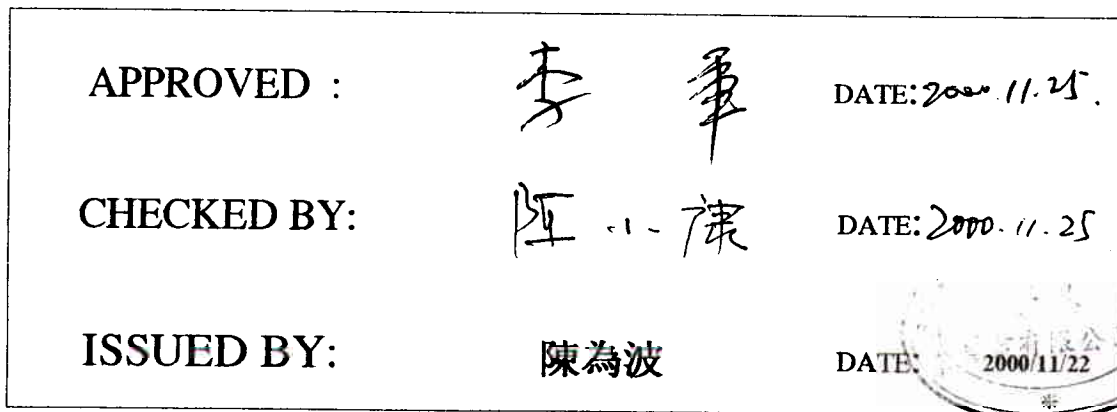 APPROVED : 李 軍 DATE: 2000.11.25.
CHECKED BY: 陈小康 DATE: 2000.11.25
ISSUED BY: 陳為波 DATE: 2000/11/22
有限公